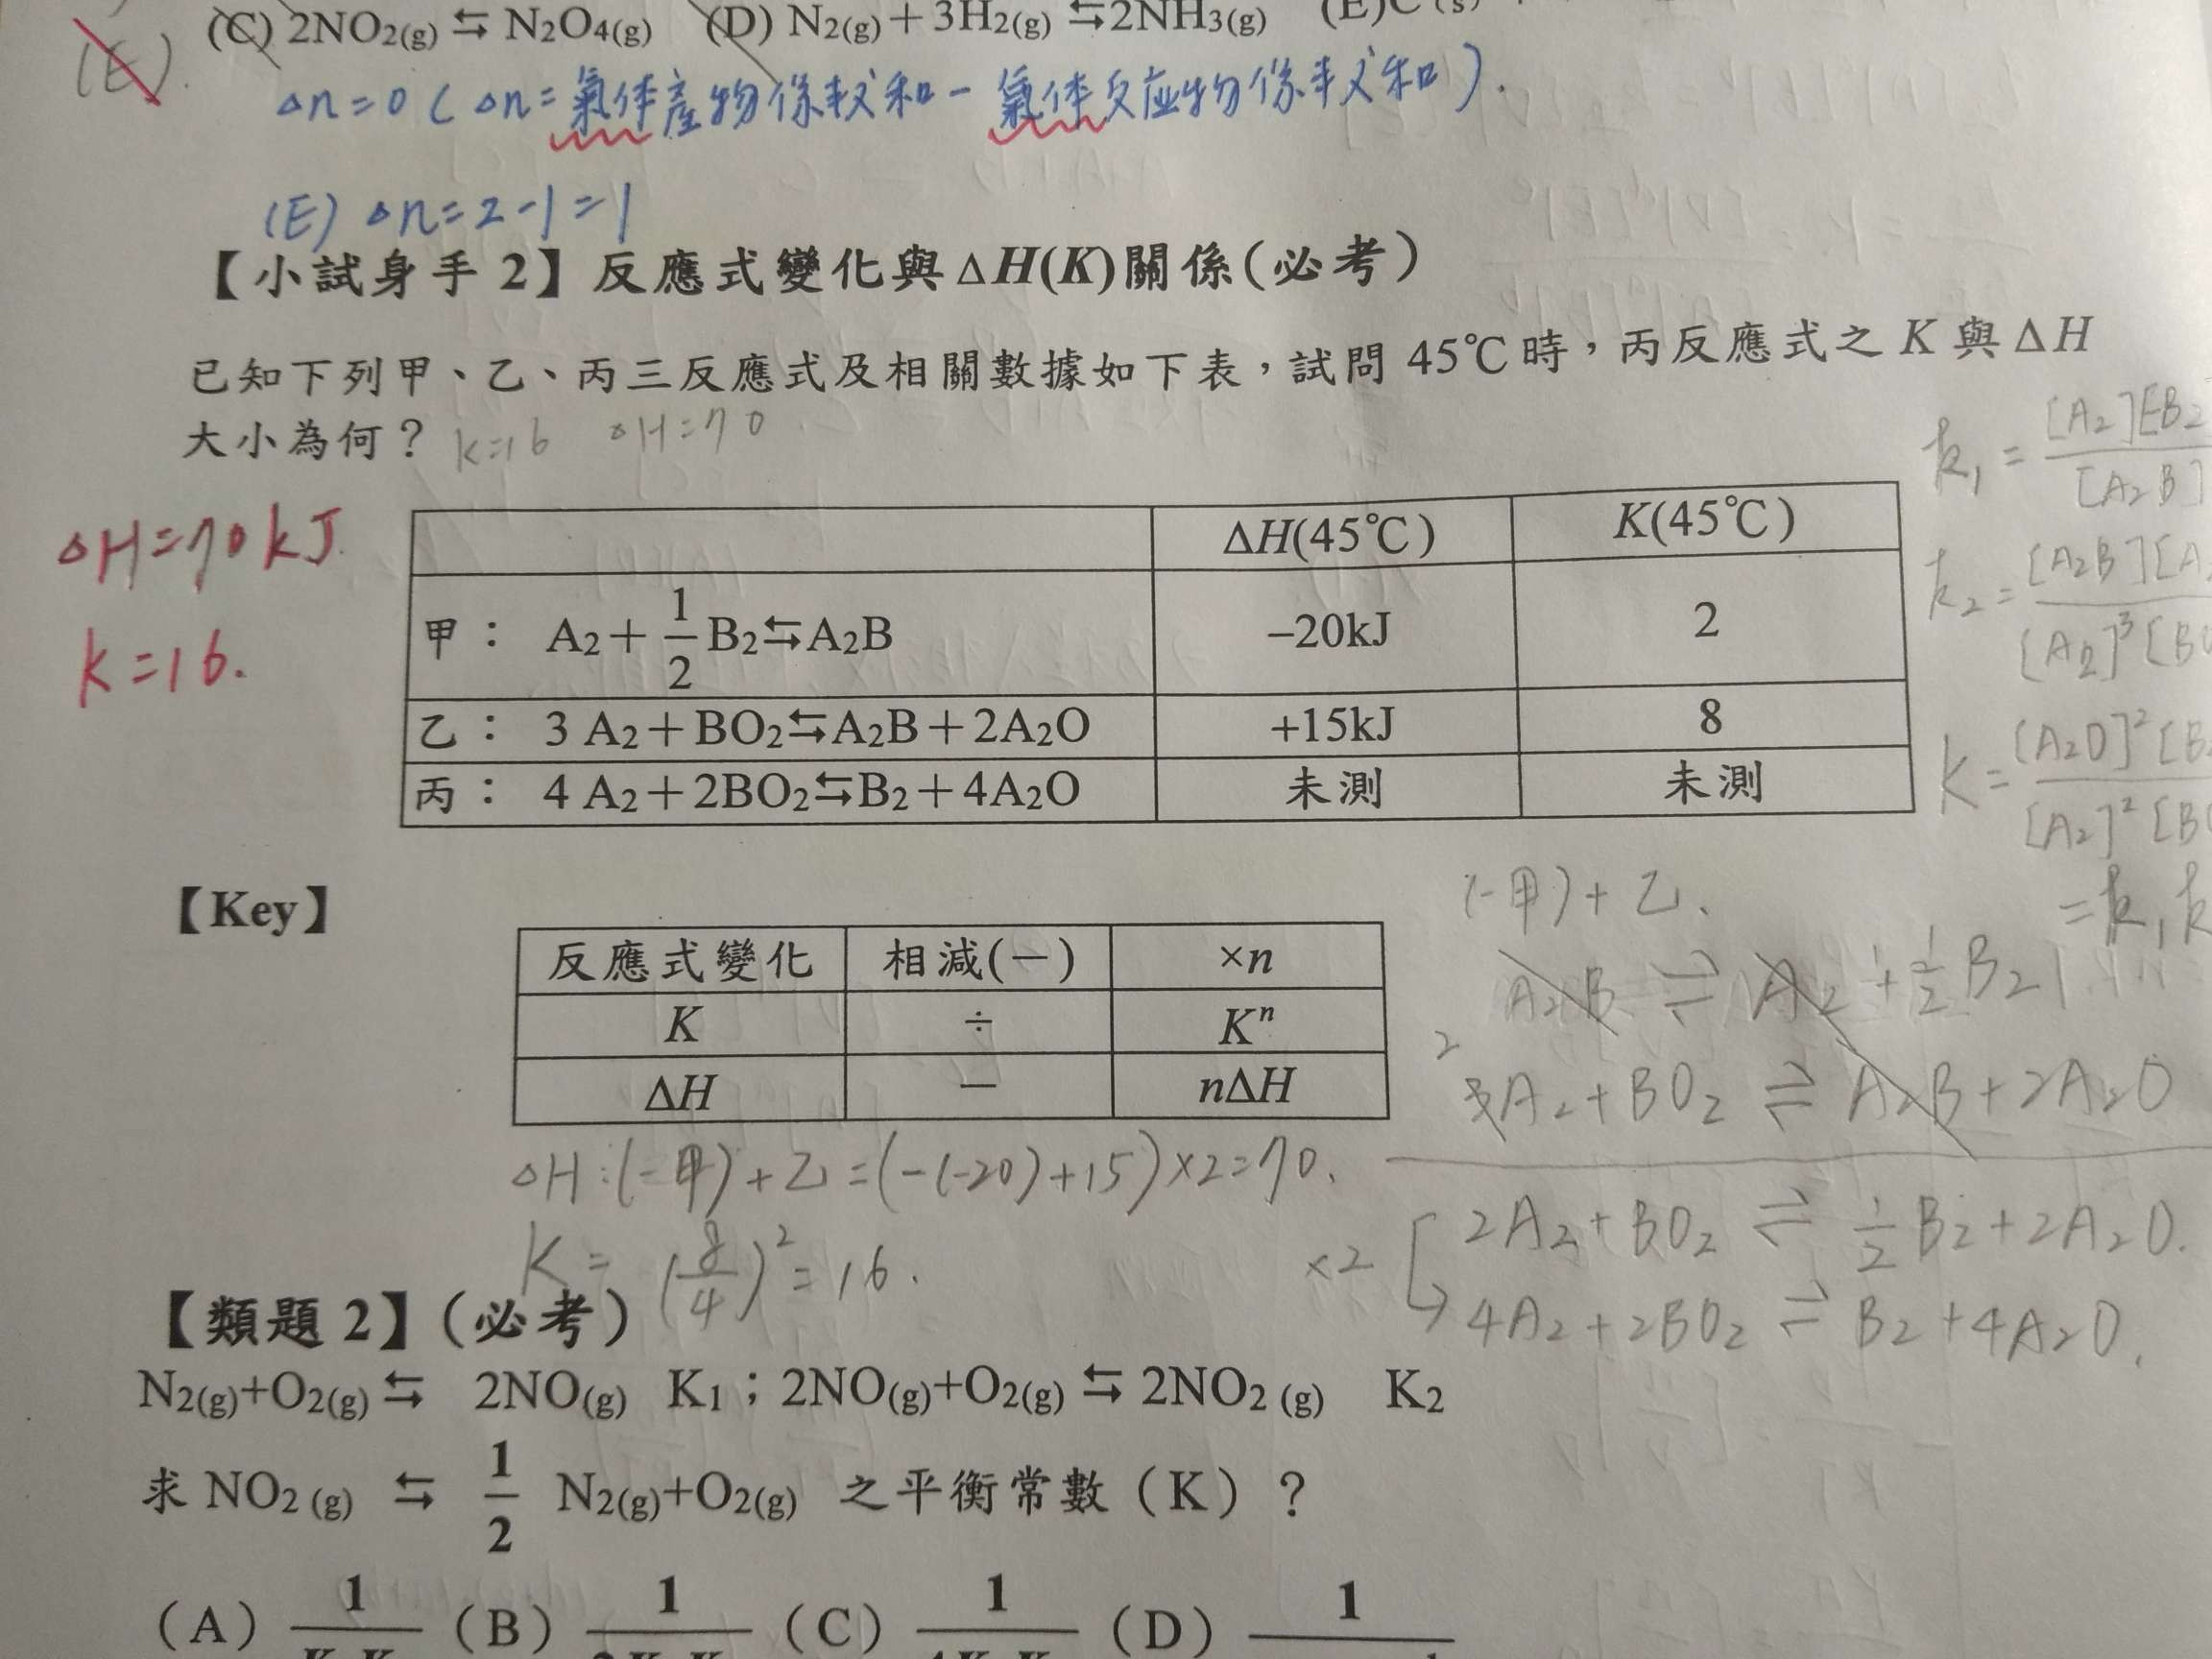 (E). (C) 2NO2(g) ⇆ N2O4(g) (D) N2(g)+3H2(g) ⇆2NH3(g) (E)C(s)
Δn=0 (Δn=氣体產物係数和-氣体反应物係数和).
(E) Δn=2-1=1
【小試身手 2】反應式變化與ΔH(K)關係(必考)
已知下列甲、乙、丙三反應式及相關數據如下表，試問 45℃時，丙反應式之 K 與ΔH
大小為何？ K=16 ΔH=70
ΔH=70kJ
K=16.
ΔH(45℃) K(45℃)
甲： A2+1/2 B2⇆A2B −20kJ 2
乙： 3 A2+BO2⇆A2B+2A2O +15kJ 8
丙： 4 A2+2BO2⇆B2+4A2O 未測 未測
k1=[A2][B2
[A2B]
k2=[A2B][A2
[A2]³[BO
K=[A2O]²[B2
[A2]²[BO
=k1k
【Key】
反應式變化 相減(−) ×n
K ÷ Kⁿ
ΔH − nΔH
(-甲)+乙.
A2B ⇌ A2+1/2 B2
2 3A2+BO2 ⇌ A2B+2A2O
×2 2A2+BO2 ⇌ 1/2 B2+2A2O.
4A2+2BO2 ⇌ B2+4A2O.
ΔH:(-甲)+乙=(-(-20)+15)×2=70.
K=(8/4)²=16.
【類題 2】(必考)
N2(g)+O2(g)⇆ 2NO(g) K1；2NO(g)+O2(g)⇆2NO2 (g) K2
求 NO2 (g) ⇆ 1/2 N2(g)+O2(g) 之平衡常數（K）？
（A） 1 （B） 1 （C） 1 （D） 1